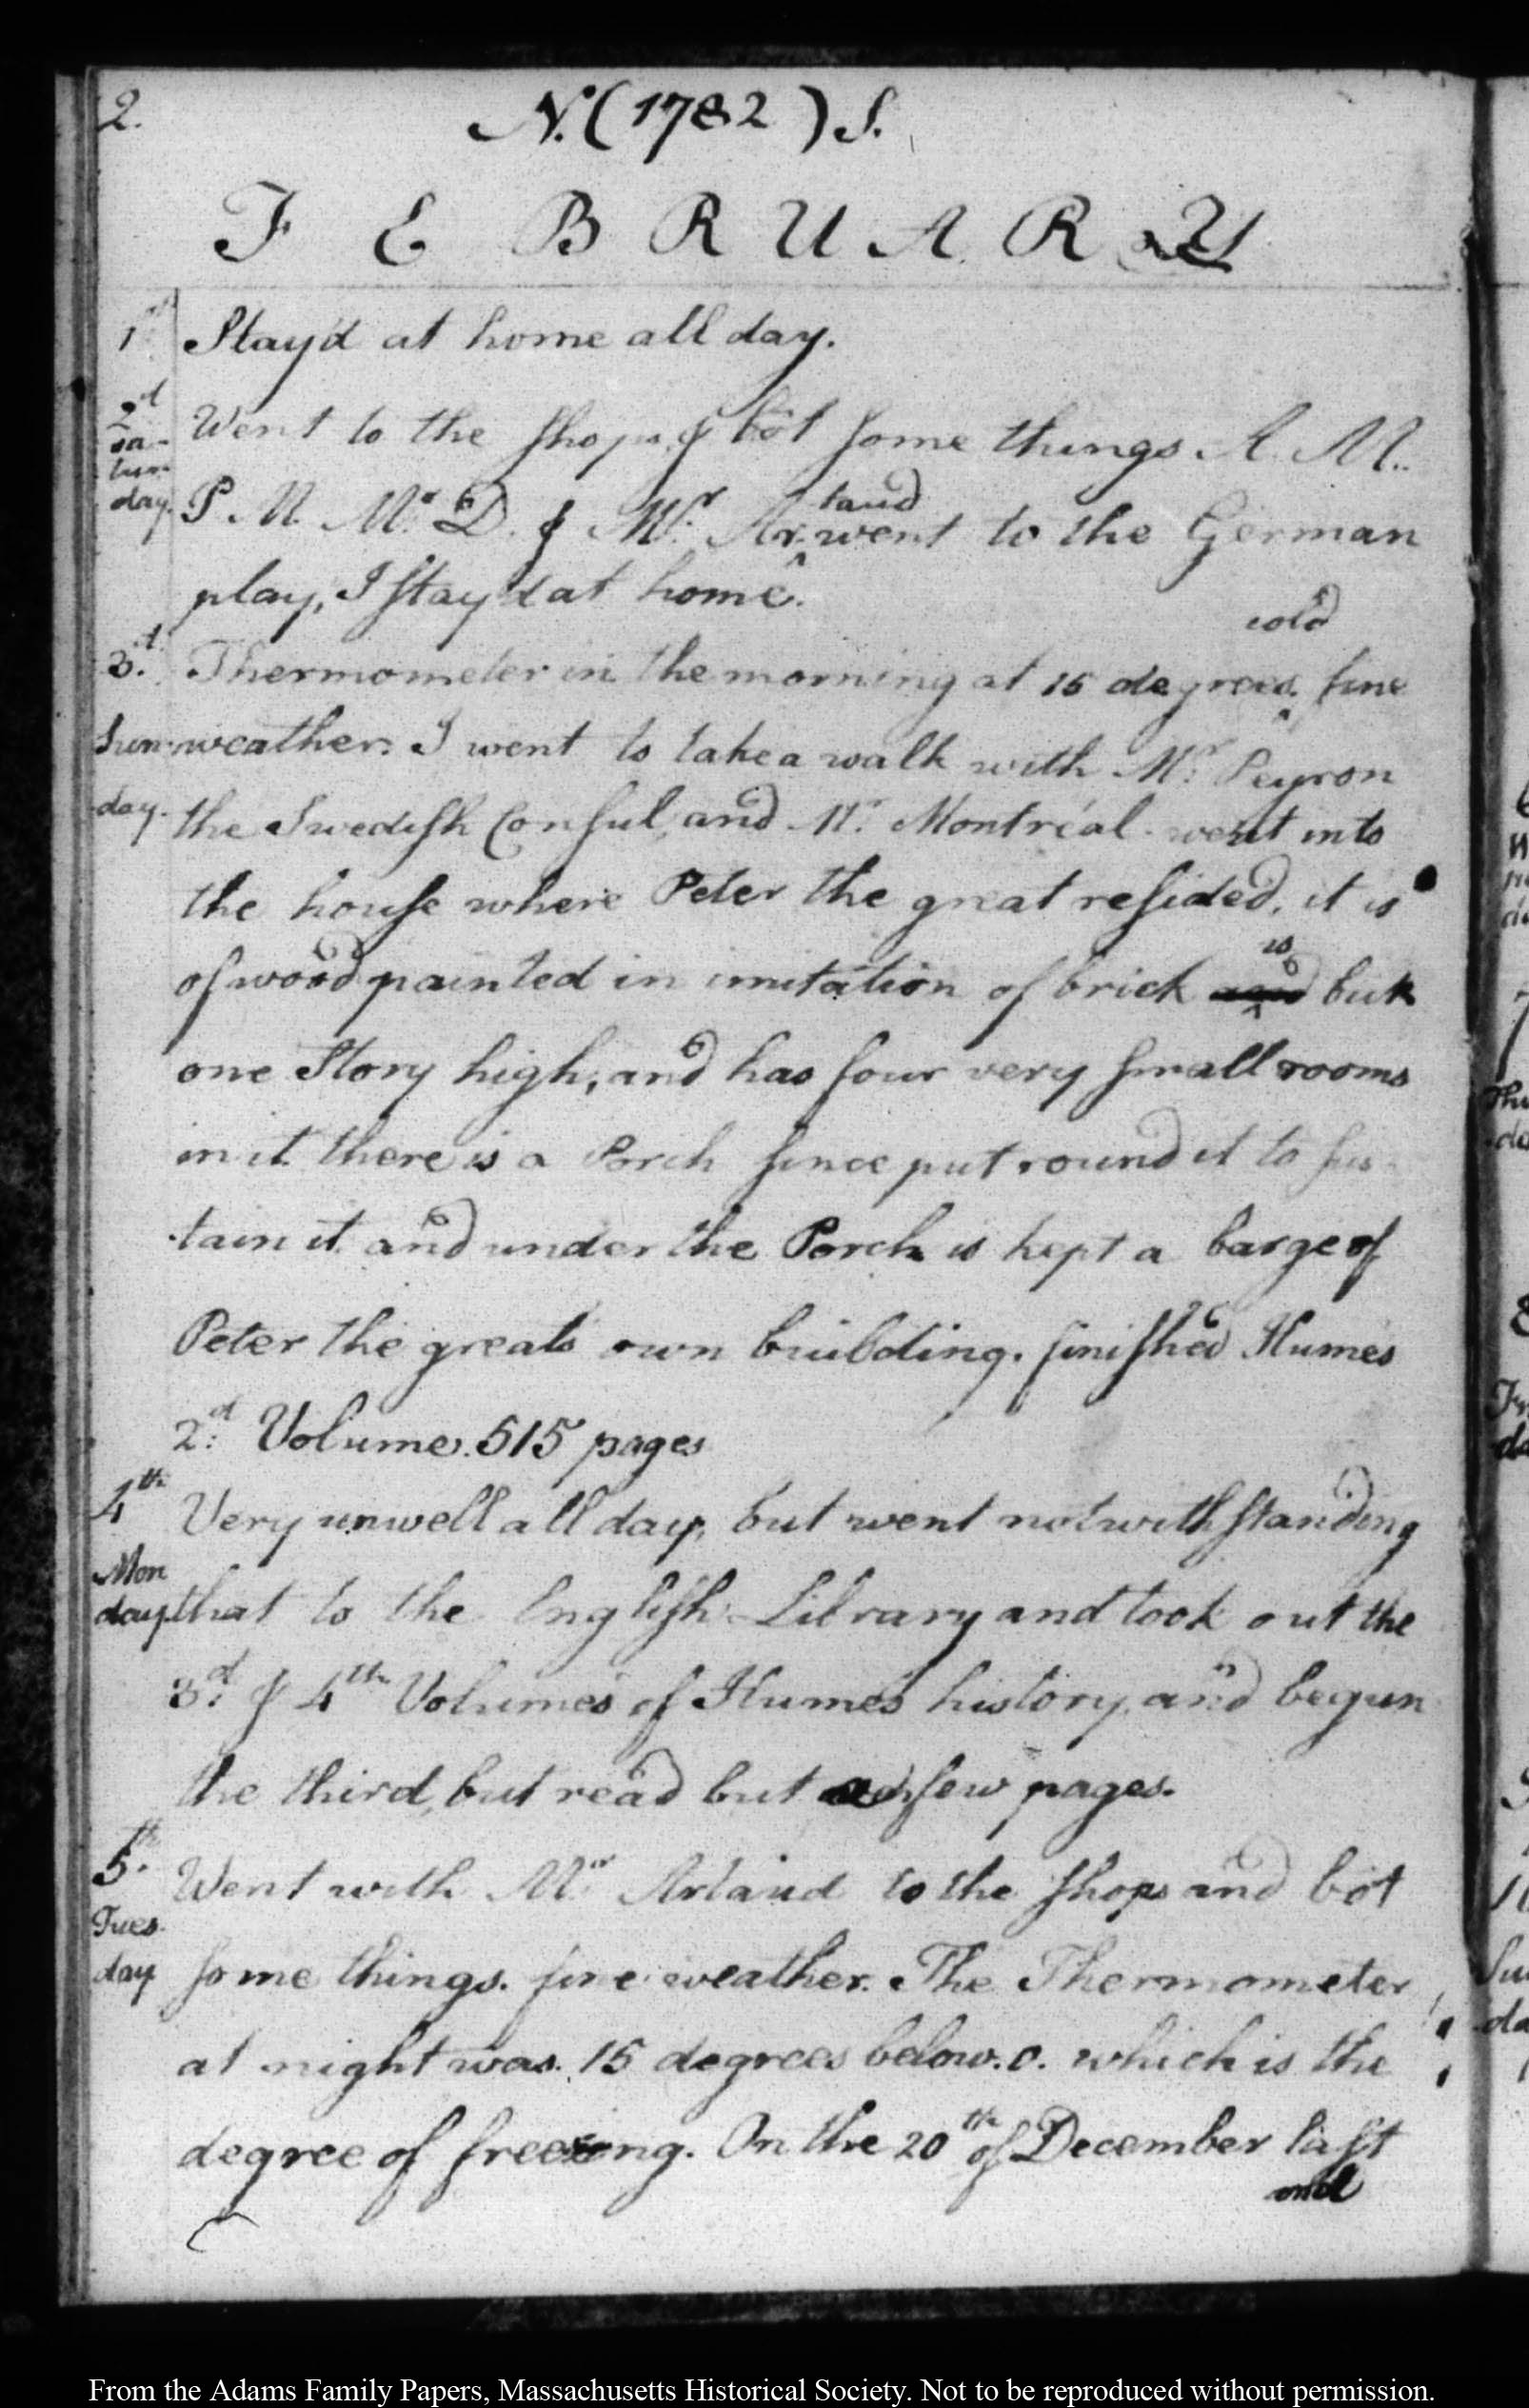 2.
N. (1782) S.
F E B R U A R Y
1st Stay'd at home all day.
2d Sa- Went to the shops & bo't some things A. M.
tur- day. P. M. Mr. D. & Mr. Artaud went to the German
play, I stay'd at home.
cold
3d. Thermometer in the morning at 15 degrees, fine
Sun- weather. I went to take a walk with Mr. Peyron
day. the Swedish Consul, and Mr. Montréal. went into
the house where Peter the great resided, it is
of wood painted in imitation of brick and is but
one Story high, and has four very small rooms
in it there is a Porch since put round it to sus-
tain it and under the Porch is kept a barge of
Peter the greats own building. finished Humes
2d. Volume. 515 pages
4th Very unwell all day, but went notwithstanding
Mon day that to the English Library and took out the
3d. & 4th Volumes of Hume's history, and begun
the third, but read but a few pages.
5th. Went with Mr. Artaud to the shops and bo't
Tues day some things. fine weather. The Thermometer
at night was. 15 degrees below. 0. which is the
degree of freezing. On the 20th of December last
and
From the Adams Family Papers, Massachusetts Historical Society. Not to be reproduced without permission.